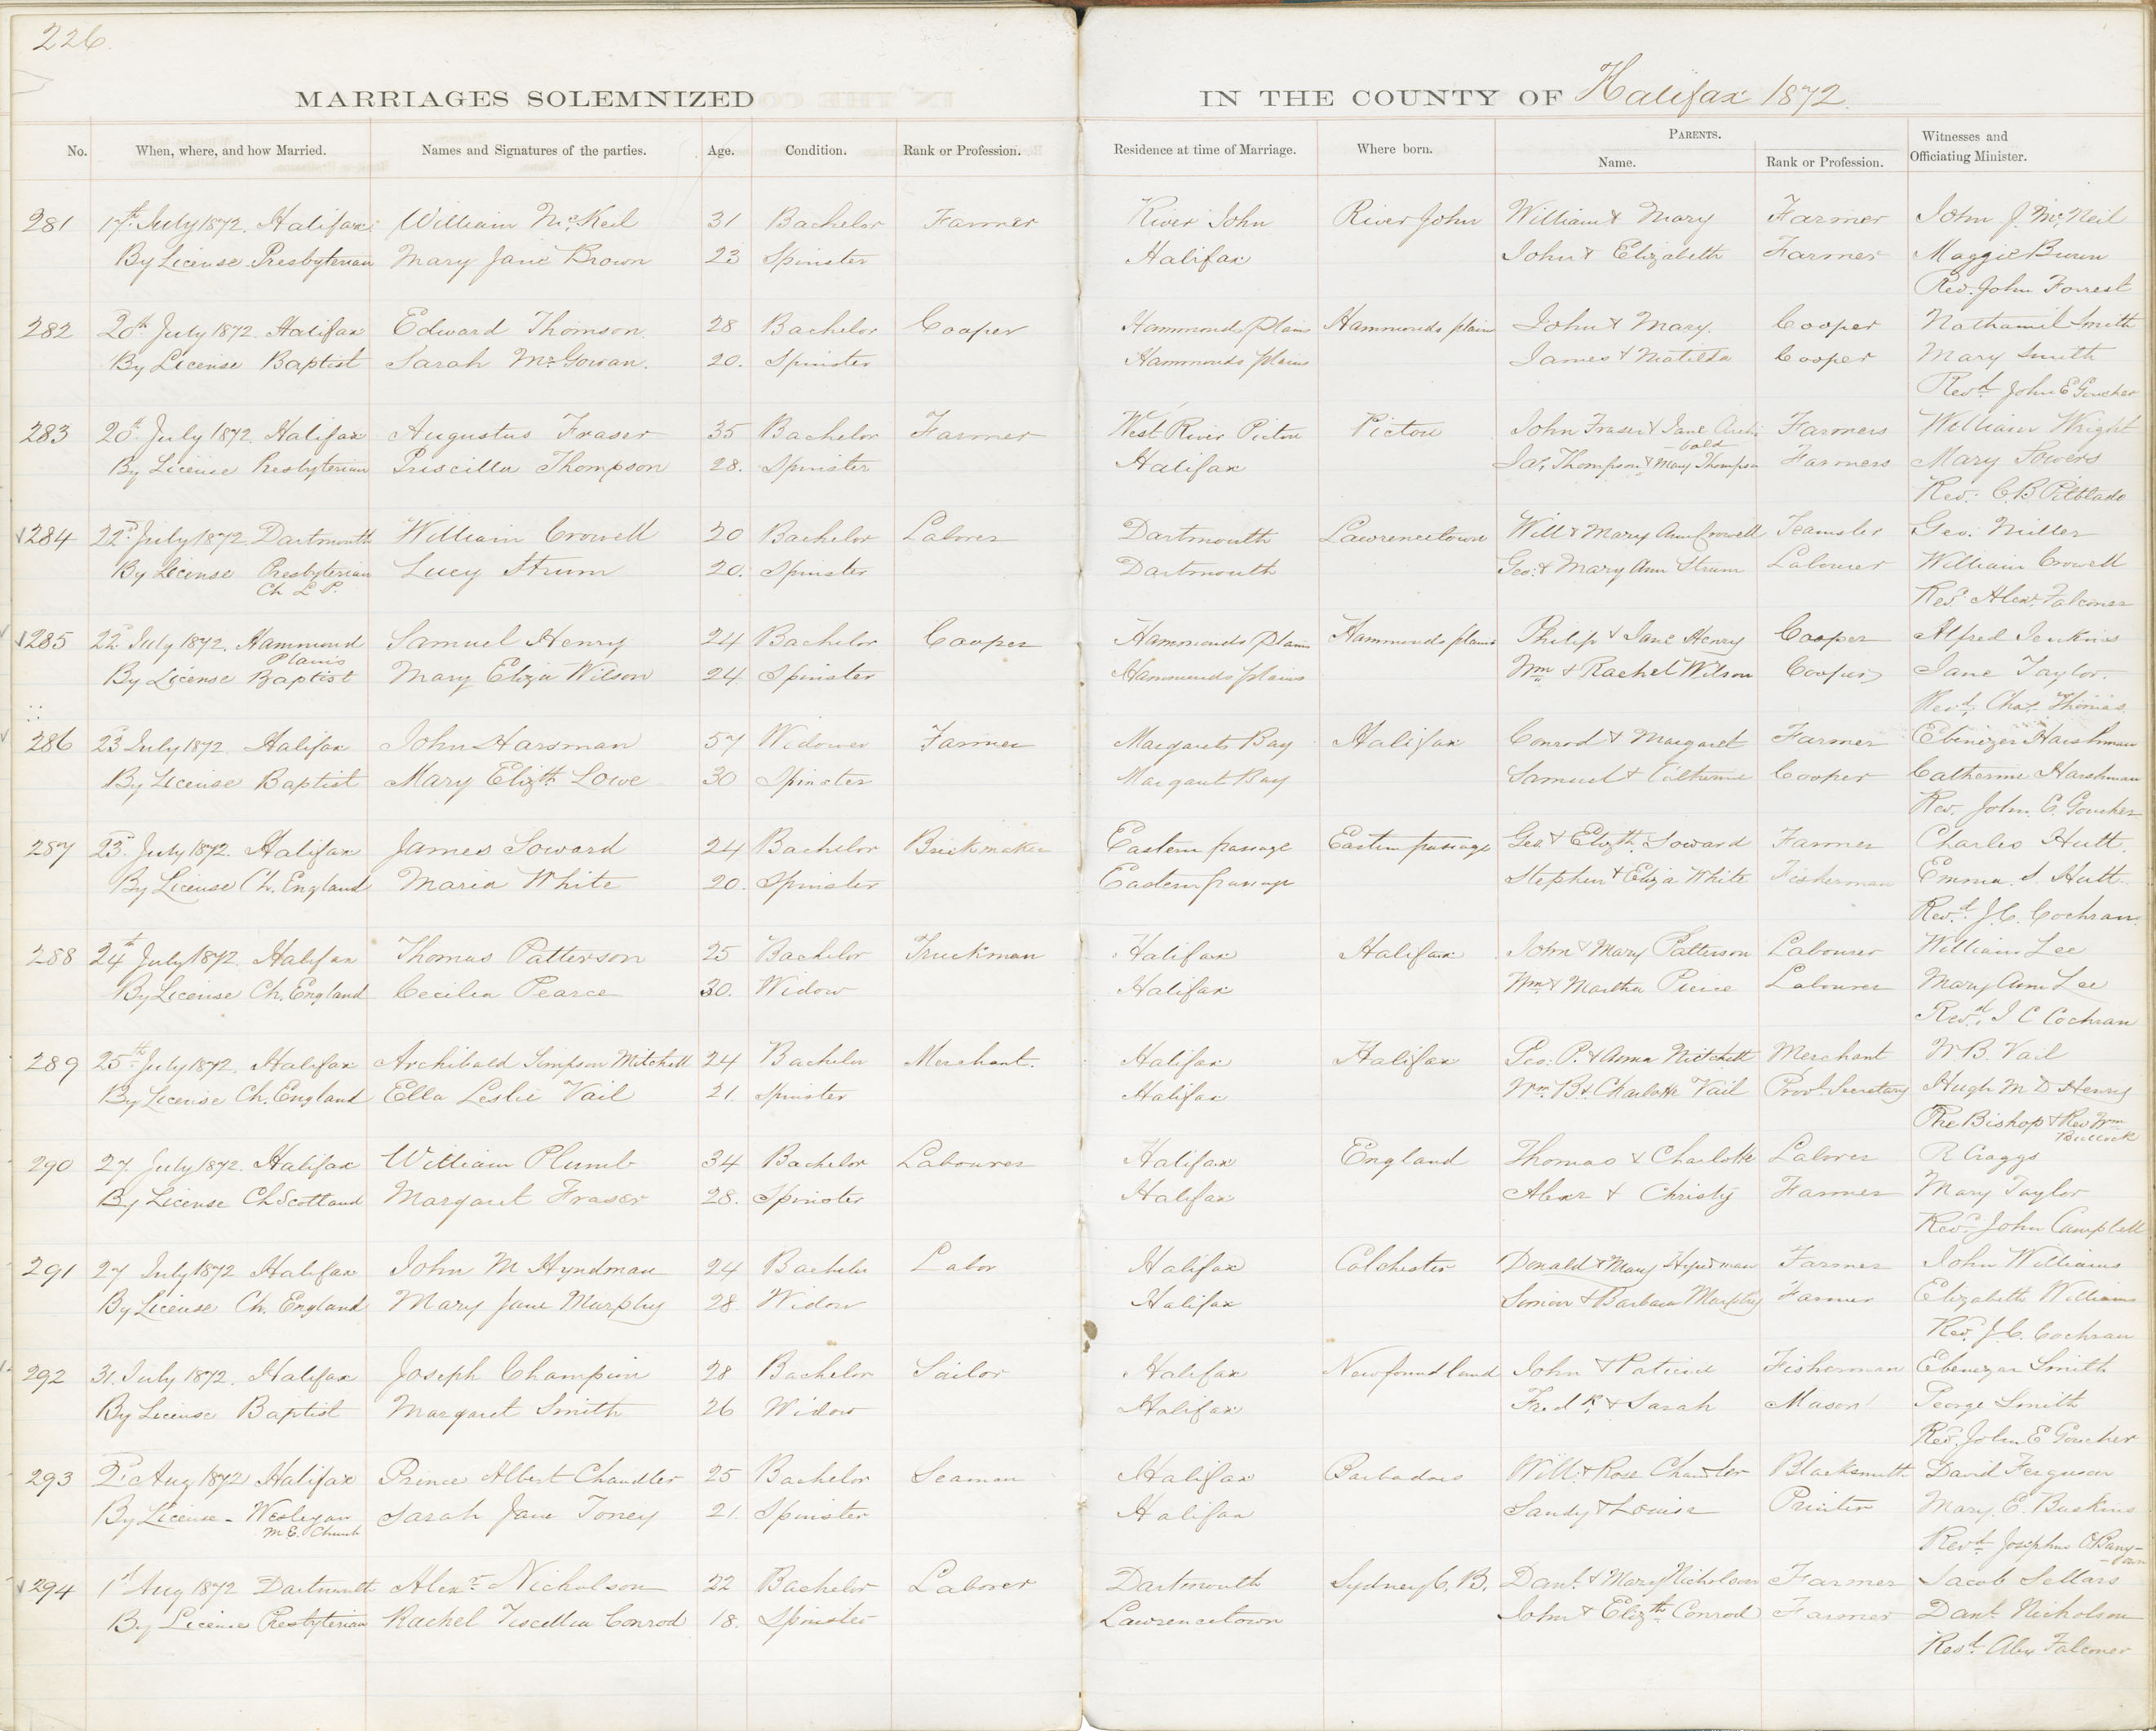 226.
MARRIAGES SOLEMNIZED IN THE COUNTY OF Halifax 1872.
No. When, where, and how Married. Names and Signatures of the parties. Age. Condition. Rank or Profession. Residence at time of Marriage. Where born. PARENTS. Name. Rank or Profession. Witnesses and Officiating Minister.
281 17th July 1872. Halifax William McKeil 31 Bachelor Farmer River John River John William & Mary Farmer John J. McNeil
By License Presbyterian Mary Jane Brown 23 Spinster Halifax John & Elizabeth Farmer Maggie
Rev. John Forrest
282 20th July 1872. Halifax Edward Thomson. 28 Bachelor Cooper Hammonds Plains Hammonds plain John & Mary. Cooper Nathaniel Smith
By License Baptist Sarah McGowan. 20. Spinster Hammonds plains James & Matilda Cooper Mary Smith
Revd. John E Goucher
283 20th July 1872 Halifax Augustus Fraser 35 Bachelor Farmer West River Pictou Pictou John Fraser & Jane Archi Farmers William Wright
bald
By License Presbyterian Priscilla Thompson 28. Spinster Halifax Jas. Thompson & Mary Thompson Farmers Mary Sowers
Rev. C. B Pitblado
284 22d July 1872. Dartmouth William Crowell 20 Bachelor Laborer Dartmouth Lawrencetown Will & Mary Ann Crowell Teamster Geo. Miller
By License Presbyterian Lucy Strum 20. Spinster Dartmouth Geo. & Mary Ann Strum Labourer William Crowell
Ch L P. Revd. Alexr. Falconer
285 22d July 1872. Hammond Samuel Henry 24 Bachelor Cooper Hammonds Plain Hammonds plains Philip & Jane Henry Cooper Alfred Jenkins
Plains
By License Baptist Mary Eliza Wilson 24 Spinster Hammonds plains Wm & Rachel Wilson Cooper Jane Taylor.
Revd. Chas. Thomas
286 23d July 1872. Halifax John Harsman 57 Widower Farmer Margarets Bay Halifax Conrod & Margaret Farmer Ebenezer Harshman
By License Baptist Mary Elizth. Lowe 30 Spinster Margaret Bay Samuel & Catherine Cooper Catherine Harshman
Rev. John. E. Goucher
287 23d. July 1872. Halifax James Soward 24 Bachelor Brickmaker Eastern passage Eastern passage Geo & Elizth. Soward Farmer Charles Hutt.
By License Ch. England Maria White 20. Spinster Eastern passage Stephen & Eliza White Fisherman Emma. S. Hutt.
Revd. J. C. Cochran
288 24th July 1872. Halifax Thomas Patterson 25 Bachelor Truckman Halifax Halifax John & Mary Patterson Labourer William Lee
By License Ch. England Cecilia Pearce 30. Widow Halifax Wm & Martha Pierce Labourer Mary Ann Lee
Revd. J C Cochran
289 25th July 1872. Halifax Archibald Simpson Mitchell 24 Bachelor Merchant. Halifax Halifax Geo: P. & Anna Mitchell Merchant W B. Vail
By License Ch. England Ella Leslie Vail 21. Spinster Halifax Wm. B. & Charlotte Vail Provl. Secretary Hugh McD Henry
The Bishop & Rev Wm
Bullock
290 27. July 1872. Halifax William Plumb 34 Bachelor Labourer Halifax England Thomas & Charlotte Laborer R Craggs
By License Ch Scotland Margaret Fraser 28. Spinster Halifax Alexr & Christy Farmer Mary Taylor
Revd. John Campbell
291 27 July 1872 Halifax John M Hyndman 24 Bachelor Labor Halifax Colchester Donald & Mary Hyndman Farmer John Williams
By License Ch. England Mary Jane Murphy 28. Widow Halifax Simeon & Barbara Murphy Farmer Elizabeth Williams
Rev. J. C. Cochran
292 31. July 1872. Halifax Joseph Champion 28 Bachelor Sailor Halifax Newfoundland John & Patience Fisherman Ebenezar Smith
By License Baptist Margaret Smith 26 Widow Halifax Fredk. & Sarah Mason George Smith
Rev. John. E Goucher
293 2d Aug 1872 Halifax Prince Albert Chandler 25 Bachelor Seaman Halifax Barbadoes Will. & Rose Chandler Blacksmith David Ferguson
By License - Wesleyan Sarah Jane Toney 21. Spinster Halifax Sandy & Louisa Painter Mary. E. Buskins
M E. Church Revd. Josephus OBany-
-oun
294 1st Aug 1872 Dartmouth Alexr. Nicholson 22 Bachelor Laborer Dartmouth Sydney C. B. Danl. & Mary Nicholson Farmer Jacob Sellars
By License Presbyterian Rachel Conrod 18. Spinster Lawrencetown John & Elizth. Conrod Farmer Danl. Nicholson
Revd. Alex Falconer